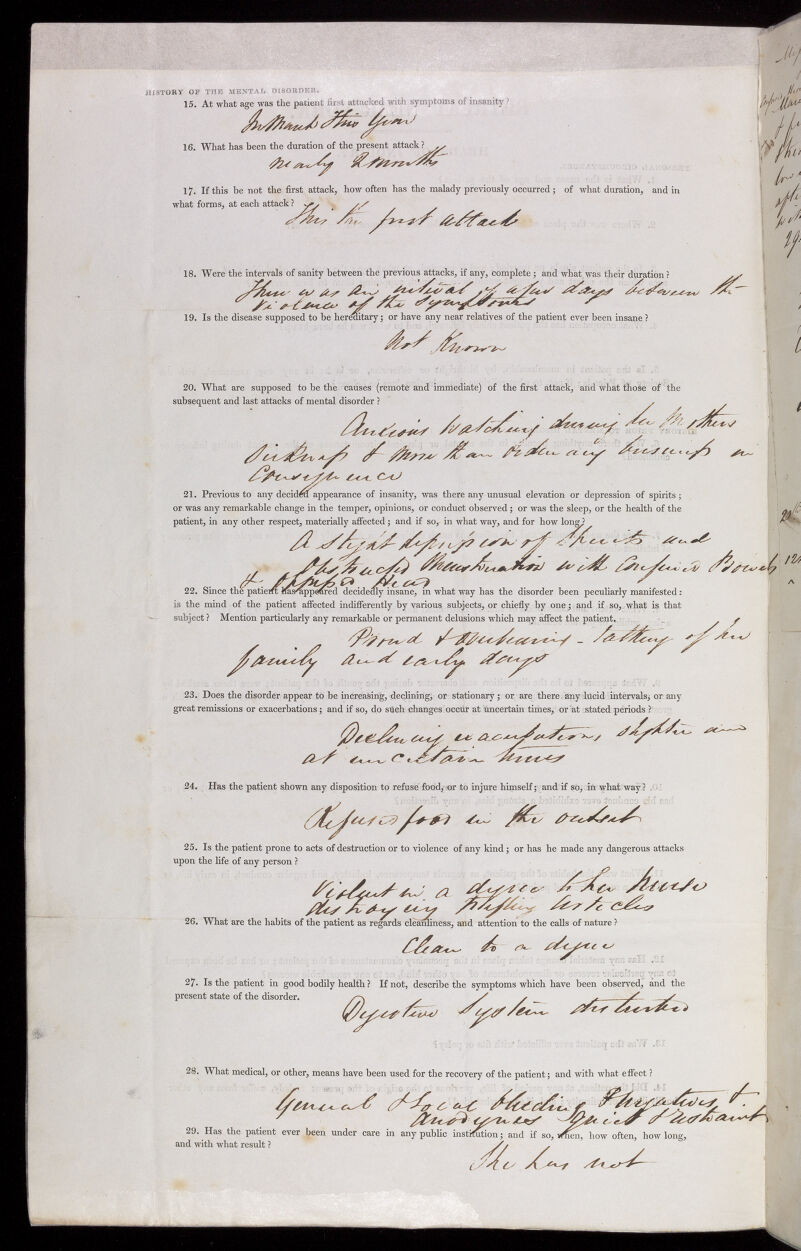 HISTORY OF THE MENTAL DISORDER.
15. At what age was the patient first attacked with symptoms of insanity?
In March This Year
16. What has been the duration of the present attack?
nearly 2 months
17. If this be not the first attack, how often has the malady previously occurred; of what duration, and in
what forms, at each attack?
This the first attack
18. Were the intervals of sanity between the previous attacks, if any, complete; and what was their duration?
There was an interval of a few days between the
violence of the Symptoms
19. Is the disease supposed to be hereditary; or have any near relatives of the patient ever been insane?
Not Known
20. What are supposed to be the causes (remote and immediate) of the first attack, and what those of the
subsequent and last attacks of mental disorder?
Anxious Watching during her Mothers
Sickness & More than ordinary business in
Consequence
21. Previous to any decided appearance of insanity, was there any unusual elevation or depression of spirits;
or was any remarkable change in the temper, opinions, or conduct observed; or was the sleep, or the health of the
patient, in any other respect, materially affected; and if so, in what way, and for how long?
A slight depression of Spirits and
Obstructed Menstruation with Confined Bowels
&
22. Since the patient has appeared decidedly insane, in what way has the disorder been peculiarly manifested:
is the mind of the patient affected indifferently by various subjects, or chiefly by one; and if so, what is that
subject? Mention particularly any remarkable or permanent delusions which may affect the patient.
Proud & overbearing - talking of her
family and early days
23. Does the disorder appear to be increasing, declining, or stationary; or are there any lucid intervals, or any
great remissions or exacerbations; and if so, do such changes occur at uncertain times, or at stated periods?
Declining exacerbations, slighter and
at uncertain times
24. Has the patient shown any disposition to refuse food, or to injure himself; and if so, in what way?
Refused food in the outset
25. Is the patient prone to acts of destruction or to violence of any kind; or has he made any dangerous attacks
upon the life of any person?
Violent in a degree to her Nurse
destroying trifling articles
26. What are the habits of the patient as regards cleanliness, and attention to the calls of nature?
Clean to a degree
27. Is the patient in good bodily health? If not, describe the symptoms which have been observed, and the
present state of the disorder.
Digestive System disturbed
28. What medical, or other, means have been used for the recovery of the patient; and with what effect?
General & Local bleeding Purgatives &
Anodynes Quiet & restraint
29. Has the patient ever been under care in any public institution; and if so, when, how often, how long,
and with what result?
She has not